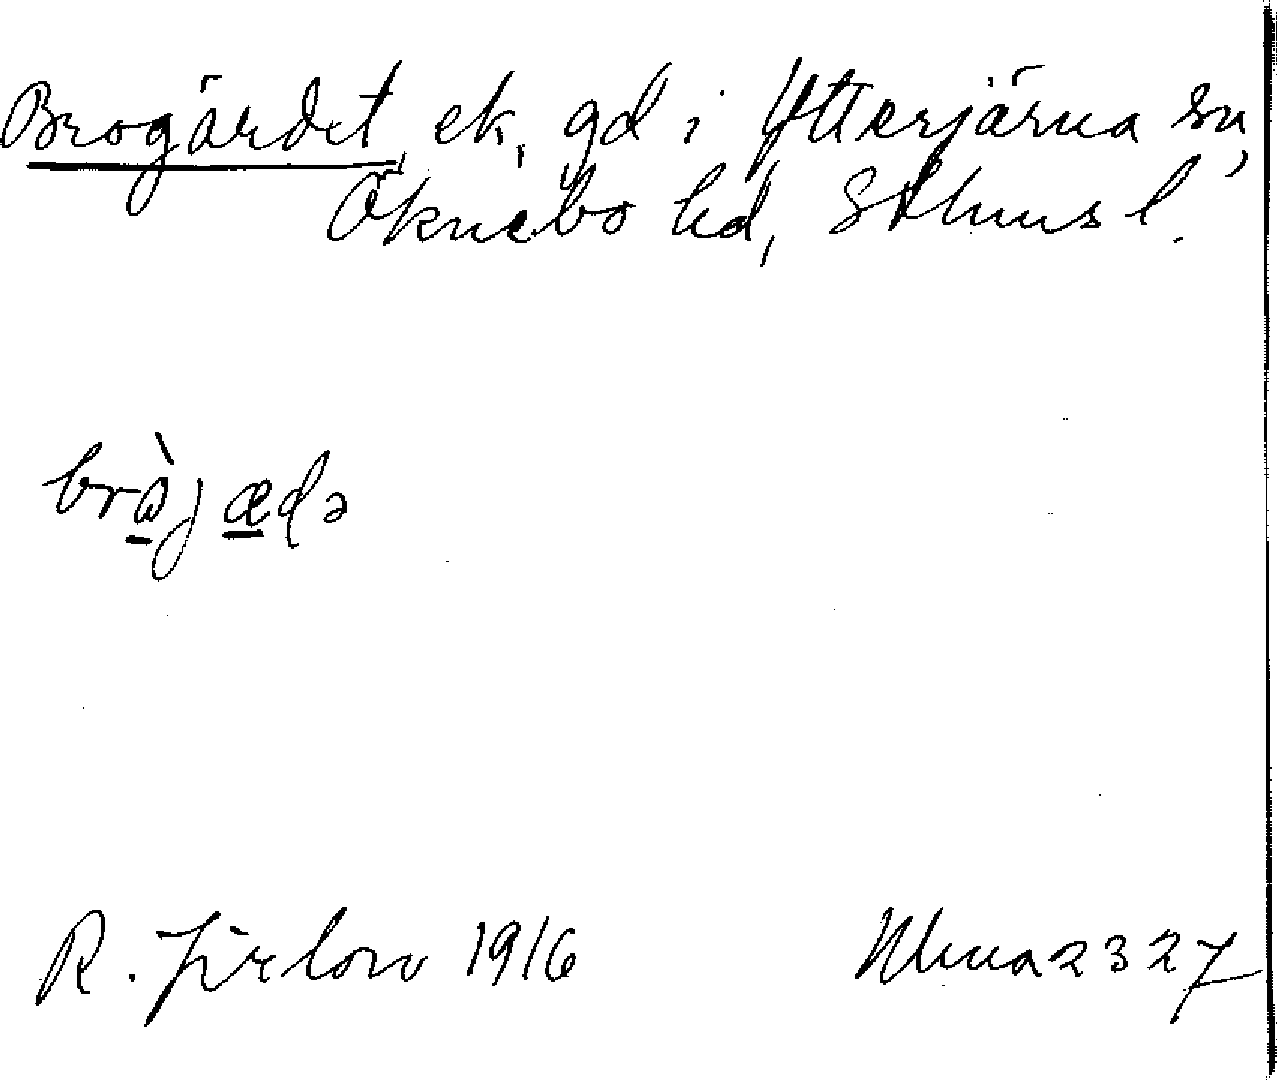 Brogärdet, ek, gd i Ytterjärna sn,
Öknebo hd, Sthms l.
brὰjædə
R. Jirlow 1916
2327